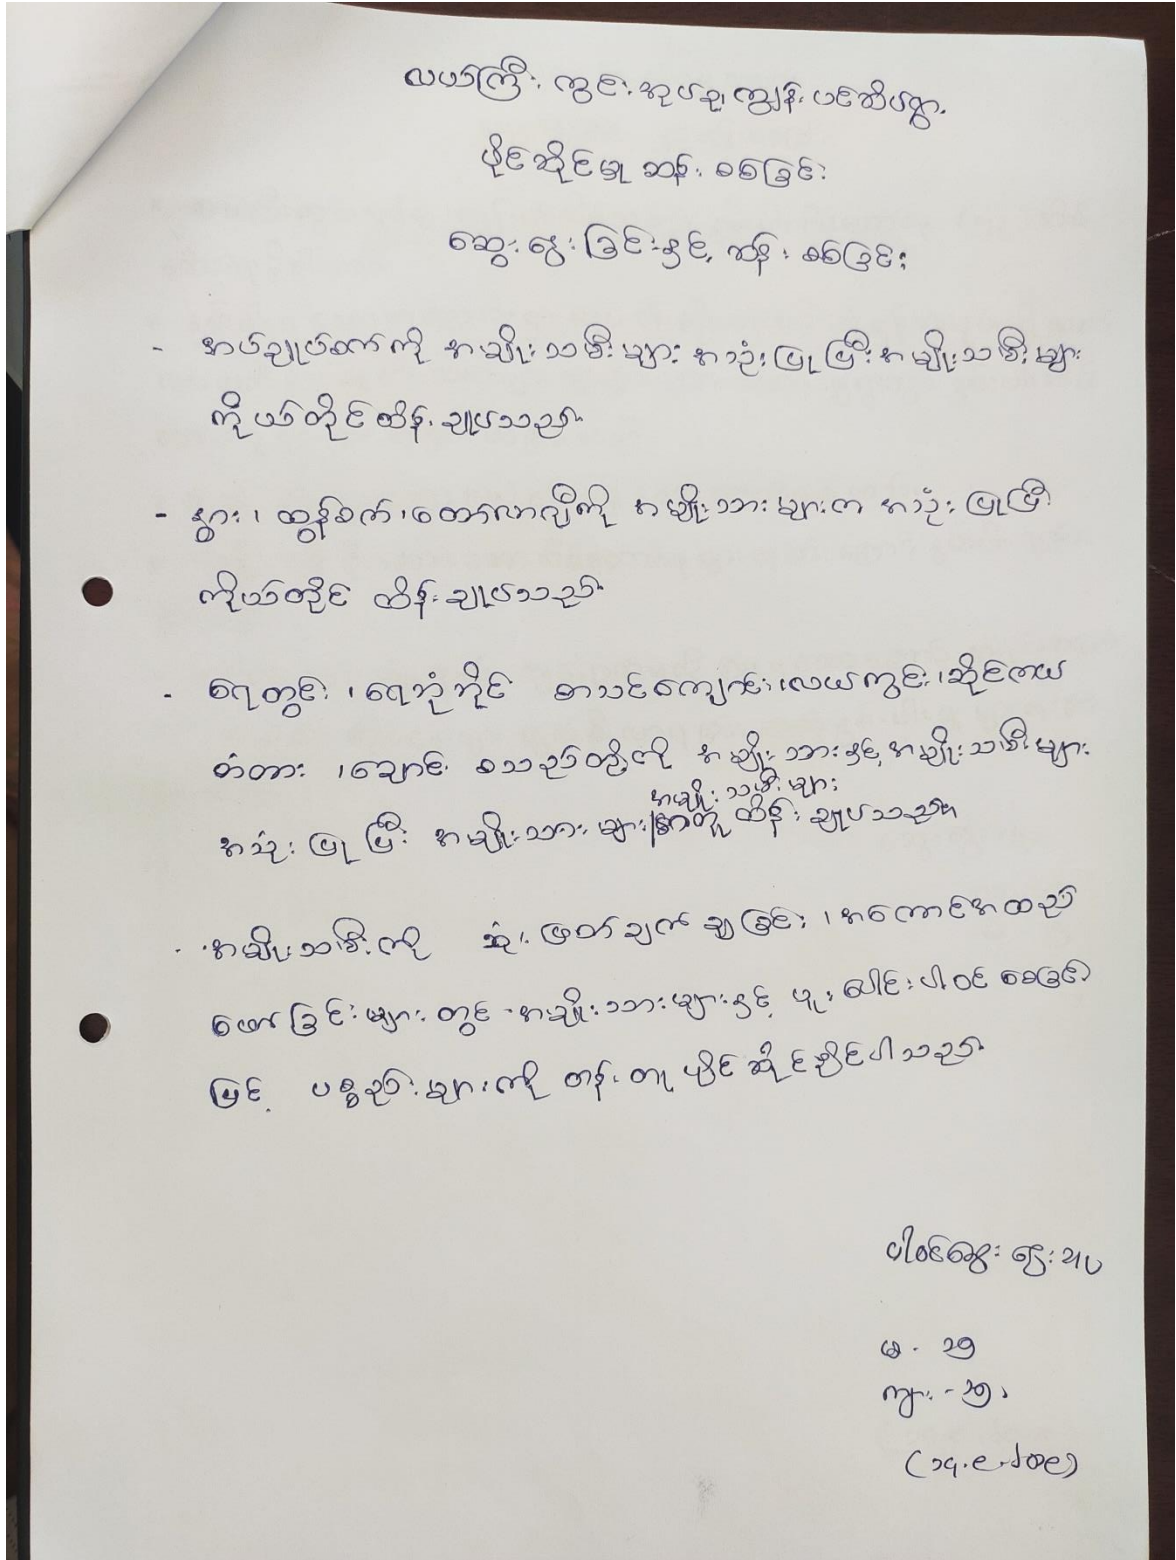 လယ်ကြီးကွင်းအုပ်စု၊ ကျွန်းပင်ဆိပ်ရွာ
ပိုင်ဆိုင်မှု ဆန်းစစ်ခြင်း
ဆွေးနွေးခြင်းနှင့် ဆန်းစစ်ခြင်း
- အပ်ချုပ်စက်ကို အမျိုးသမီးများ အသုံးပြုပြီး အမျိုးသမီးများ
ကိုယ်တိုင်ထိန်းချုပ်သည်။
- နွား၊ ထွန်စက်၊ တော်လာဂျီကို အမျိုးသားများက အသုံးပြုပြီး
ကိုယ်တိုင် ထိန်းချုပ်သည်။
- ရေတွင်း၊ ရေဘုံဘိုင် စာသင်ကျောင်း၊ လယ်ကွင်း၊ ဆိုင်ကယ်
တံတား၊ ချောင်း စသည်တို့ကို အမျိုးသားနှင့် အမျိုးသမီးများ
အမျိုးသမီးများ
အသုံးပြုပြီး အမျိုးသားများ အတူ ထိန်းချုပ်သည်။
- အမျိုးသမီးကို ဆုံးဖြတ်ချက်ချခြင်း၊ အကောင်အထည်
ဖော်ခြင်းများတွင် အမျိုးသားများနှင့် ပူးပေါင်းပါဝင်စေခြင်း
ဖြင့် ပစ္စည်းများကို တန်းတူပိုင်ဆိုင်နိုင်ပါသည်။
ပါဝင်ဆွေးနွေးသူ
မ - ၁၅
ကျား - ၁၅
(၁၄.၉.၂၀၁၉)